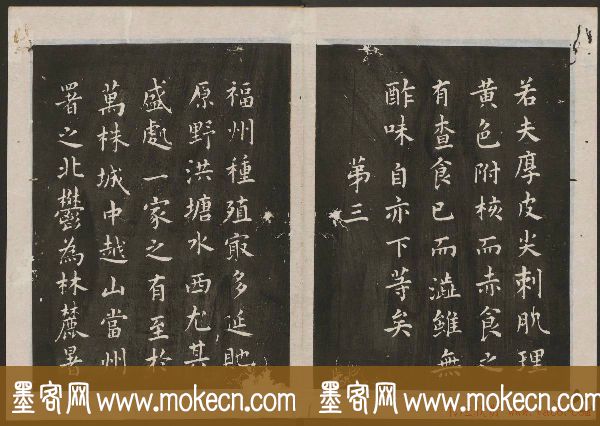 若夫厚皮尖刺肌理
黄色附核而赤食之
有查食已而澁雖無
酢味自亦下等矣
第三
福州種殖冣多延貤
原野洪塘水西尤其
盛處一家之有至於
萬株城中越山當州
署之北鬱為林麓暑
墨客网 www.mokecn.com 墨客网 www.mokecn.com